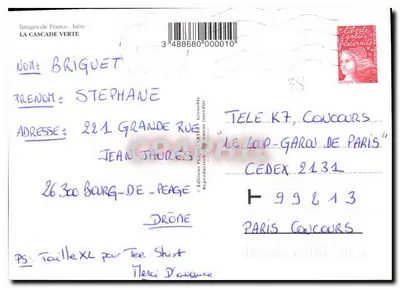 Images de France... Isère
LA CASCADE VERTE
3 488680 000010
NOM: BRIGUET
PRENOM: STEPHANE
ADRESSE: 221 GRANDE RUE
JEAN JAURÈS
26300 BOURG-DE-PEAGE
DRÔME
PS: Taille XL pour Tee Shirt
Merci D'avance
TELE K7, CONCOURS
"LE LOUP-GAROU DE PARIS"
CEDEX 2131
99213
PARIS CONCOURS